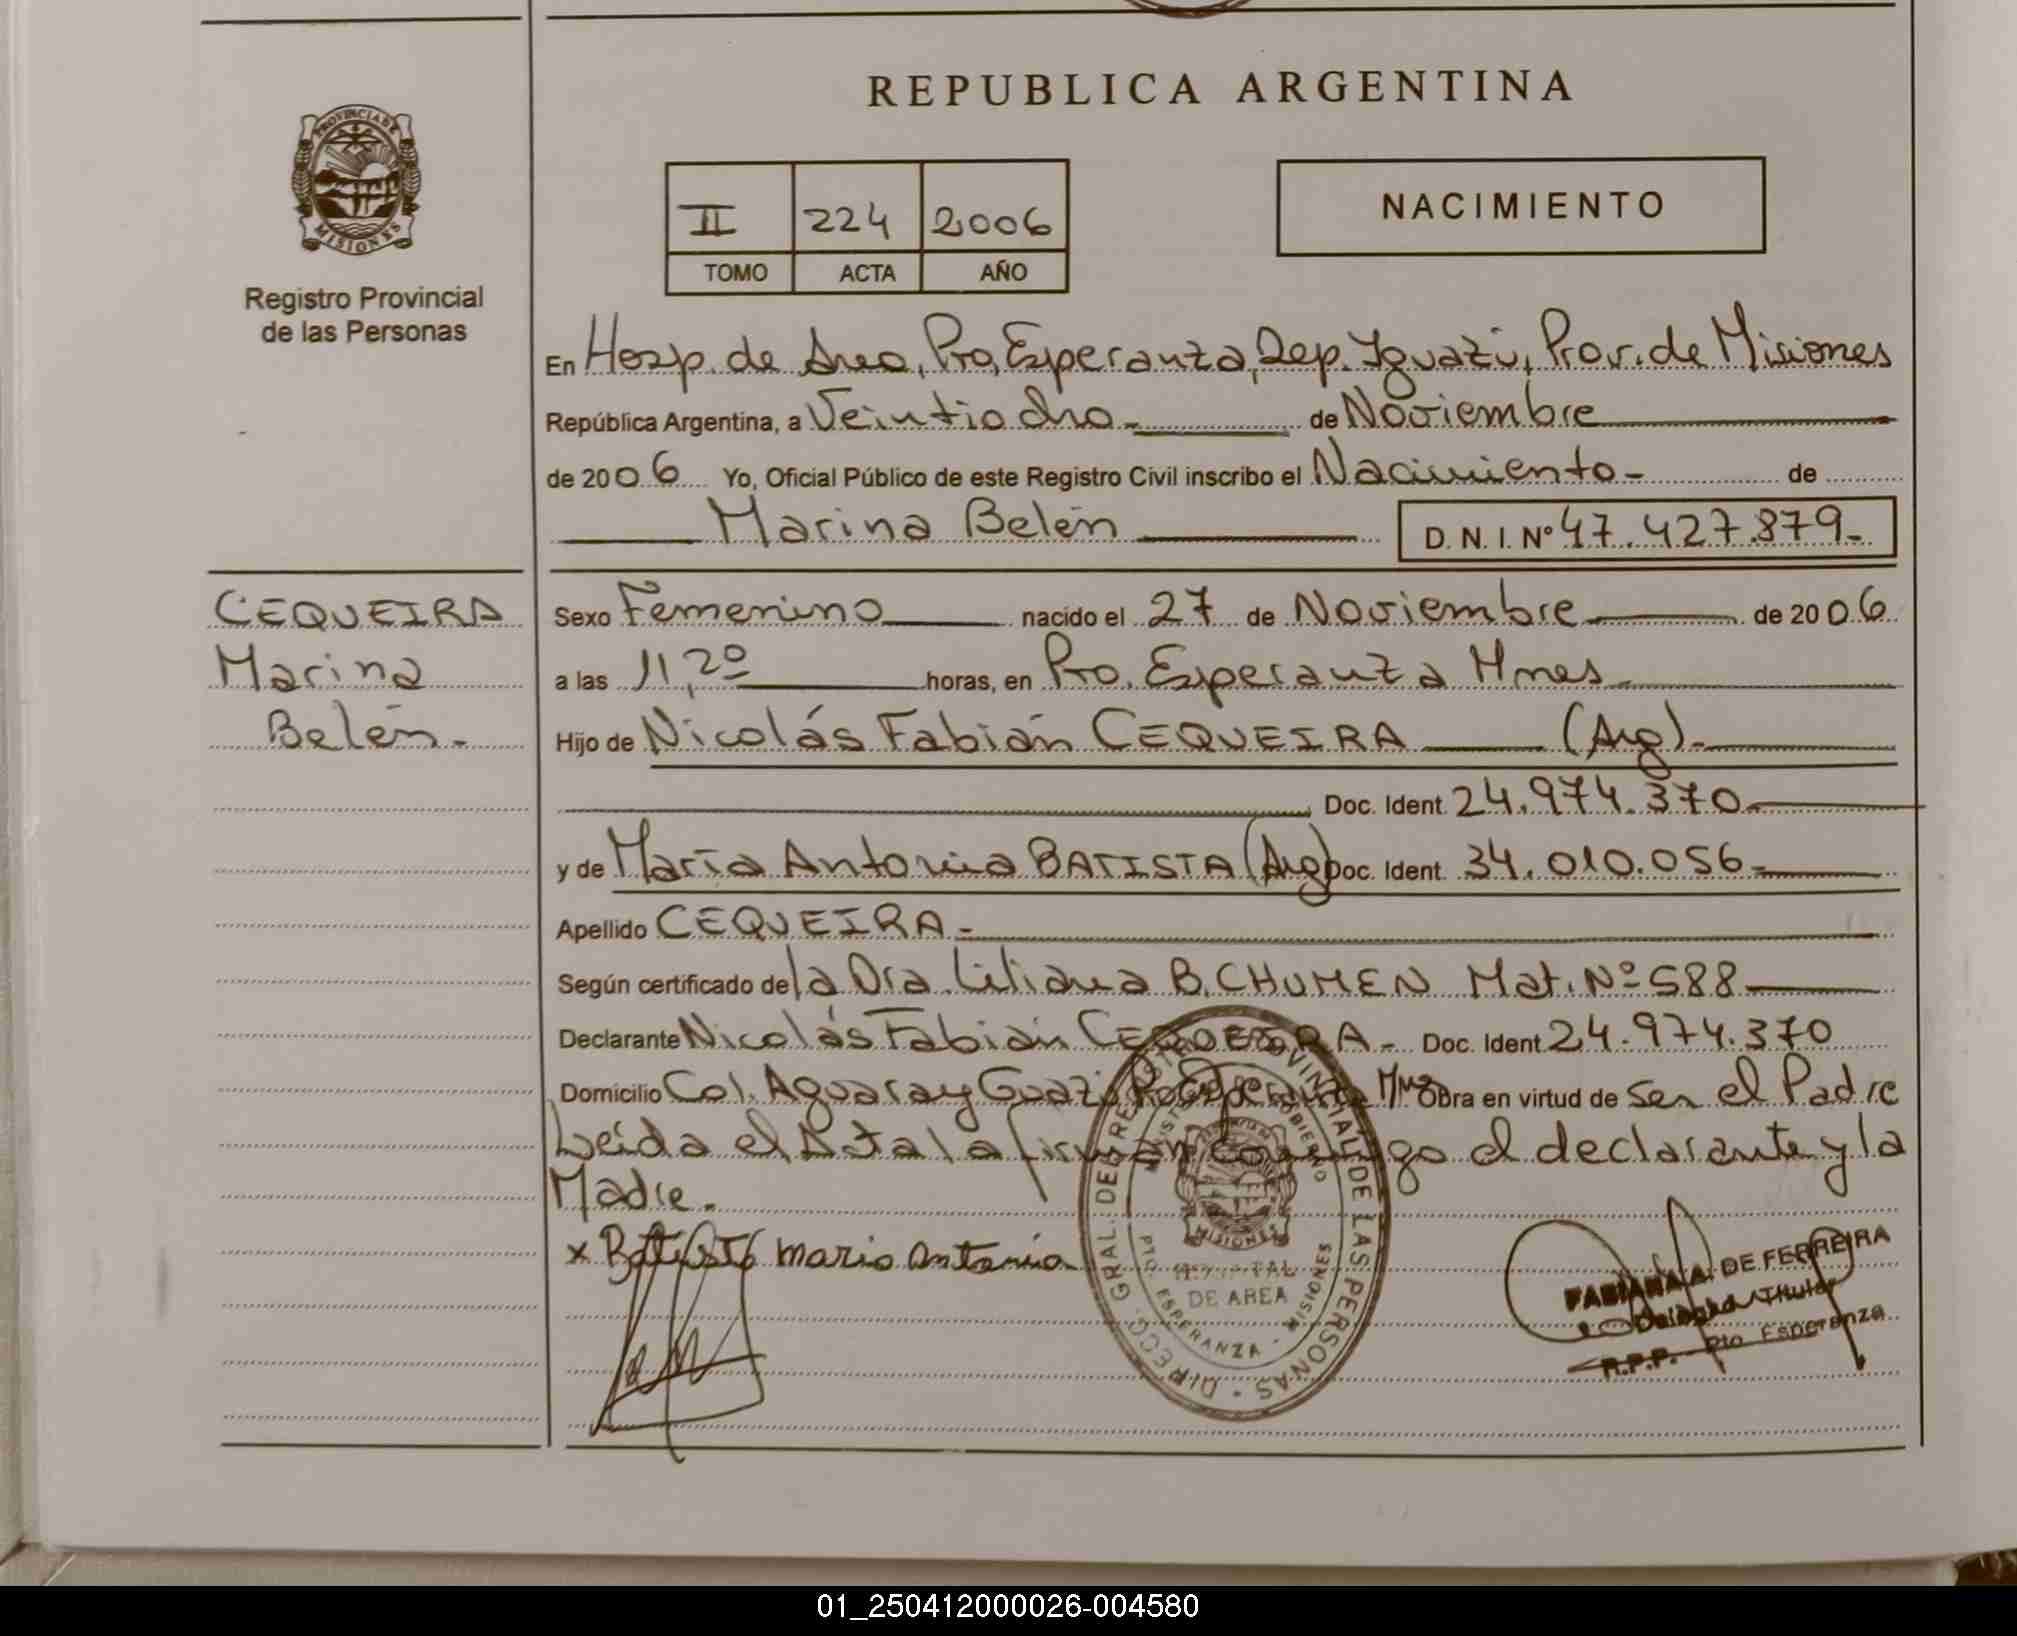 REPUBLICA ARGENTINA
PROVINCIA DE
MISIONES
Registro Provincial
de las Personas
II 224 2006
TOMO ACTA AÑO
NACIMIENTO
En Hosp. de Area, Pto, Esperanza, Dep. Iguazú, Prov. de Misiones
República Argentina, a Veintiocho - de Noviembre
de 2006 Yo, Oficial Público de este Registro Civil inscribo el Nacimiento - de
Marina Belén D. N. I. Nº 47.427.879-
CEQUEIRA
Marina
Belén-
Sexo Femenino nacido el 27 de Noviembre de 2006
a las 11,20 horas, en Pto. Esperanza Mnes
Hijo de Nicolás Fabián CEQUEIRA (Arg)-
Doc. Ident. 24.974.370-
y de María Antonia BATISTA (Arg) Doc. Ident. 34.010.056-
Apellido CEQUEIRA-
Según certificado de la Dra. Liliana B. CHUMEN Mat. Nº 588
Declarante Nicolás Fabián CEQUEIRA- Doc. Ident 24.974.370
Domicilio Col. Aguaray Guazú Pto Esperanza Mnes Obra en virtud de Ser el Padre
Leída el Acta la firman conmigo el declarante y la
Madre.
x Batista maria antonia
DIRECC. GRAL. DEL REGISTRO PROVINCIAL DE LAS PERSONAS
MISIONES
HOSPITAL
DE AREA
PTO. ESPERANZA - MISIONES
FABIANA A. DE FERREIRA
Delegada Titular
R.P.P. - Pto Esperanza
01_250412000026-004580